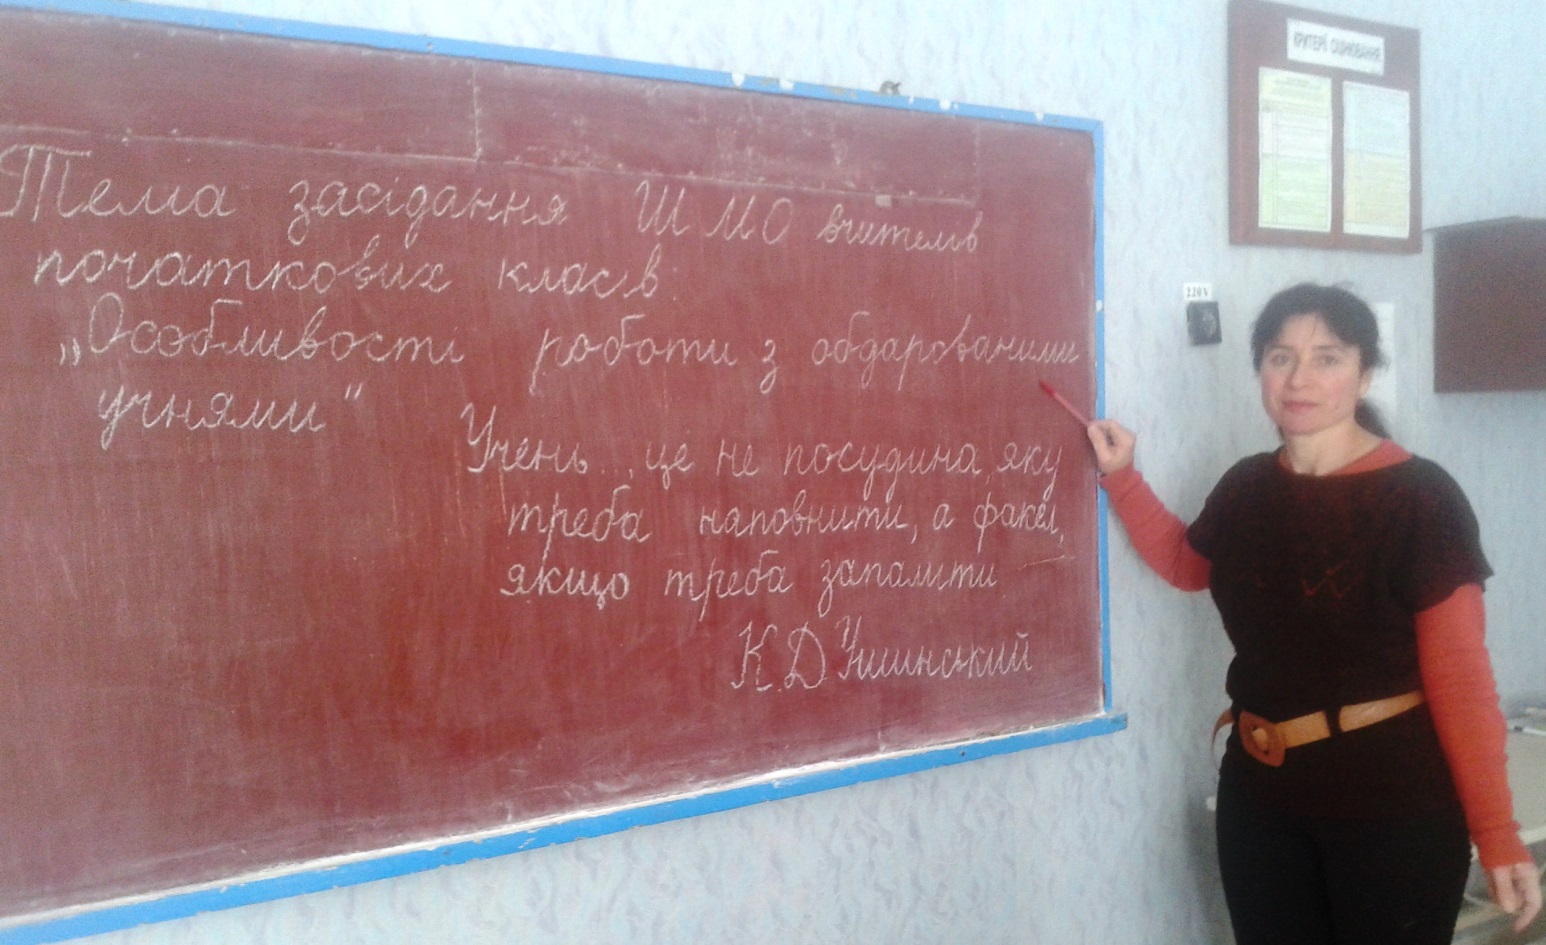 Тема засідання ШМО вчителів
початкових класів
„Особливості роботи з обдарованими
учнями"
Учень..., це не посудина, яку
треба наповнити, а факел,
якщо треба запалити
К.Д Ушинський
КРИТЕРІЇ ОЦІНЮВАННЯ
220 V